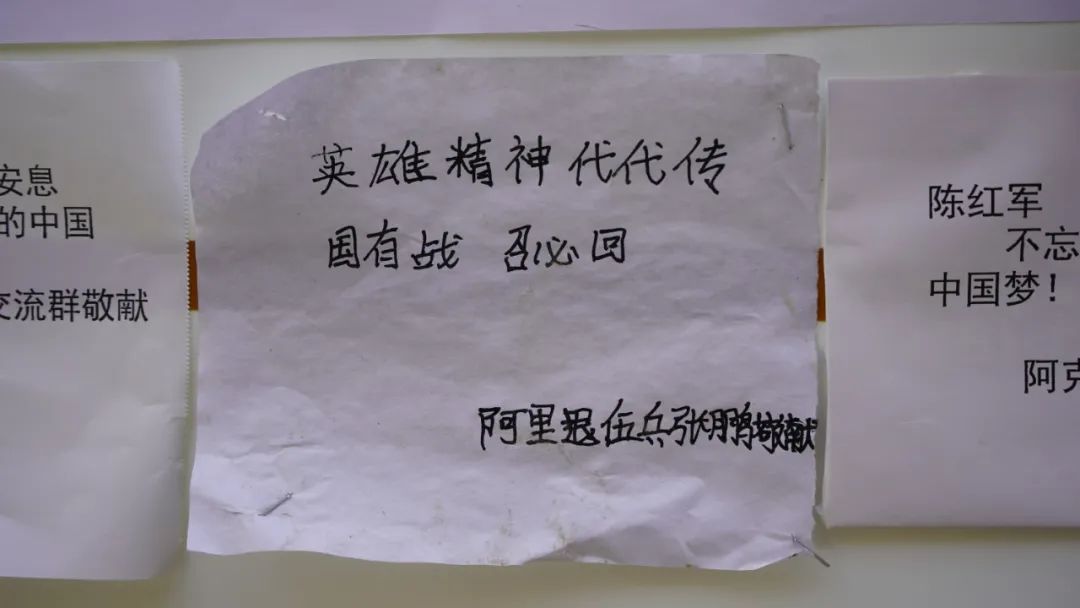 安息
的中国
交流群敬献
英雄精神代代传
国有战 召必回
阿里退伍兵张鹏敬献
陈红军
不忘
中国梦!
阿克